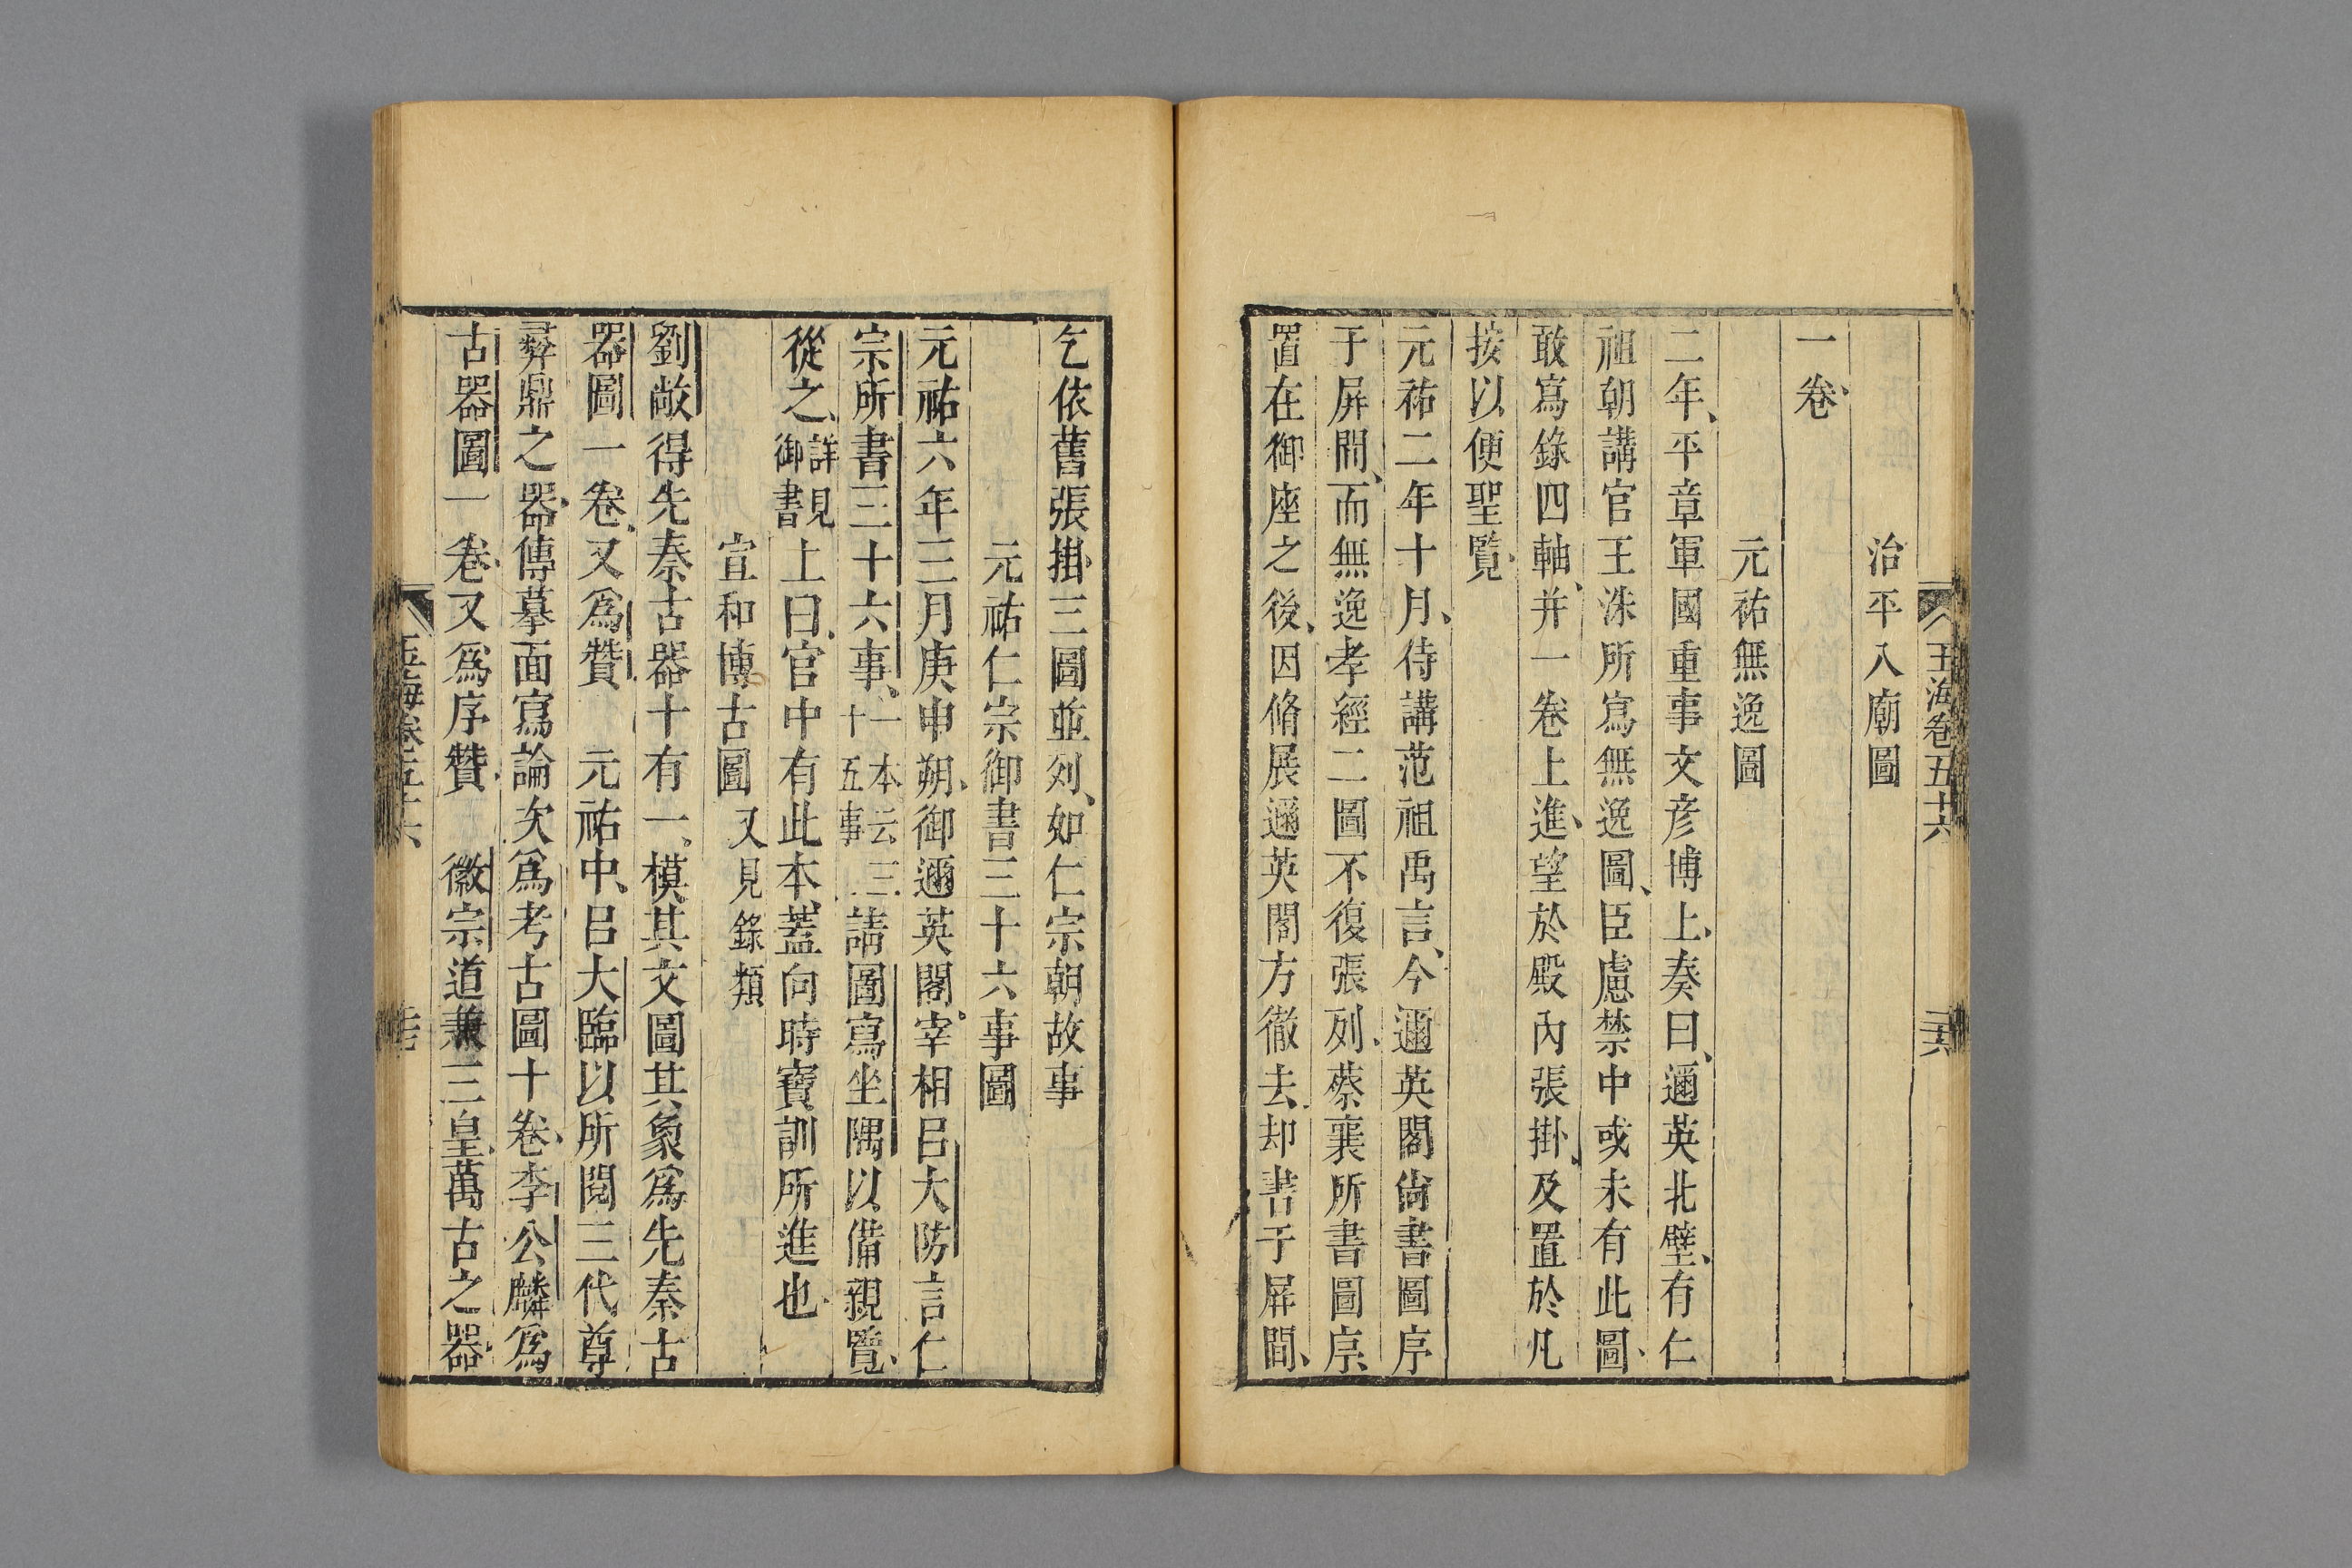 玉海卷五十六
二十六
治平入廟圖
一卷
元祐無逸圖
二年平章軍國重事文彥博上奏曰邇英北壁有仁
祖朝講官王洙所寫無逸圖臣慮禁中或未有此圖
敢寫錄四軸并一卷上進望於殿內張掛及置於凡
按以便聖覽
元祐二年十月侍講范祖禹言今邇英閣尚書圖序
于屏間而無逸孝經二圖不復張列蔡襄所書圖序
置在御座之後因脩展邇英閣方徹去却書于屏間
乞依舊張掛三圖並列如仁宗朝故事
元祐仁宗御書三十六事圖
元祐六年三月庚申朔御邇英閣宰相呂大防言仁
宗所書三十六事一本云三十五事請圖寫坐隅以備親覽
從之詳見御書上曰官中有此本蓋向時寶訓所進也
宣和博古圖又見錄類
劉敞得先秦古器十有一模其文圖其象爲先秦古
器圖一卷又爲贊 元祐中呂大臨以所閱三代尊
彝鼎之器傳摹面寫論次爲考古圖十卷李公麟爲
古器圖一卷又爲序贊 徽宗道兼三皇萬古之器
玉海卷五十六